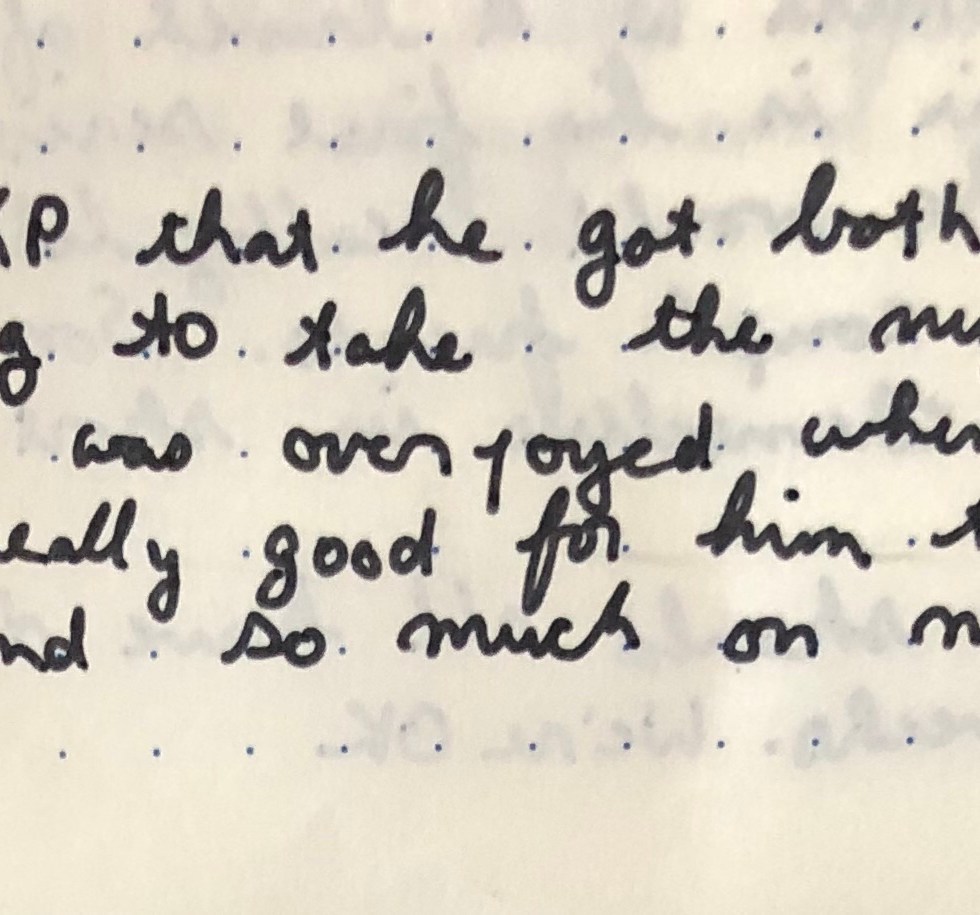 that he got both
to take the
was overjoyed when
good for him
so much on